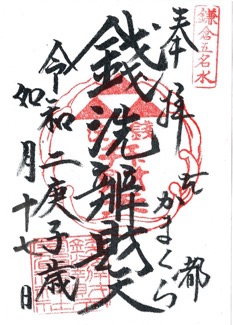 鎌倉五名水
奉拝
かまくら
銭洗辨財天
令和二庚子歳
如月十七日